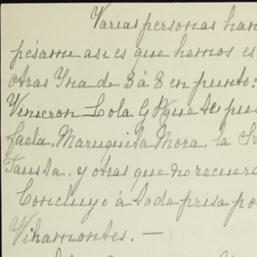 Varias personas han
pésame asi es que hemos es
otras Yna de 3 á 8 en punto:
Vinieron Lola G
faela, Maruquita Mora, la Sr
Fausta, y otras que no recuerd
Concluyo á toda prisa po
Vihamontes. —